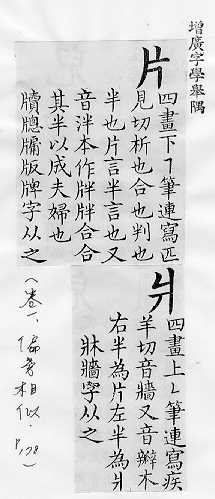 增廣字學舉隅
片
四畫下㇕筆連寫匹
見切析也合也判也
半也片言半言也又
音泮本作牉牉合合
其半以成夫婦也
牘牕牖版牌字从之
爿
四畫上㇄筆連寫疾
羊切音牆又音辦木
右半為片左半為爿
牀牆字从之
(卷一、偏旁相似.P.78)